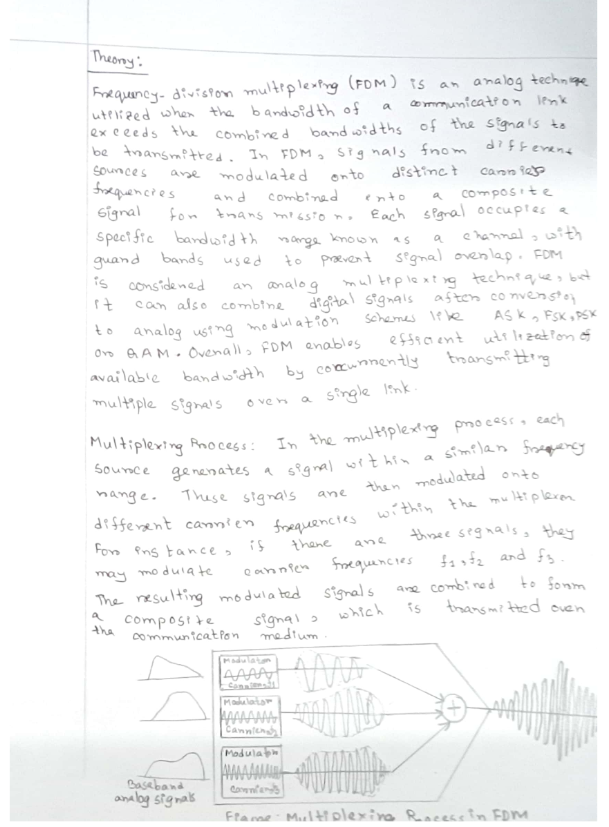 Theory:
Frequency-division multiplexing (FDM) is an analog technique
utilized when the bandwidth of a communication link
exceeds the combined bandwidths of the signals to
be transmitted. In FDM, signals from different
sources are modulated onto distinct carrier
frequencies and combined into a composite
signal for transmission. Each signal occupies a
specific bandwidth range known as a channel, with
guard bands used to prevent signal overlap. FDM
is considered an analog multiplexing technique, but
it can also combine digital signals after conversion
to analog using modulation schemes like ASK, FSK, PSK
or QAM. Overall, FDM enables efficient utilization of
available bandwidth by concurrently transmitting
multiple signals over a single link.
Multiplexing Process: In the multiplexing process, each
source generates a signal within a similar frequency
range. These signals are then modulated onto
different carrier frequencies within the multiplexer
For instance, if there are three signals, they
may modulate carrier frequencies f1, f2 and f3.
The resulting modulated signals are combined to form
a composite signal, which is transmitted over
the communication medium.
Modulator
Carrier f1
Modulator
Carrier f2
Modulator
Carrier f3
Baseband
analog signals
Figure: Multiplexing Process in FDM